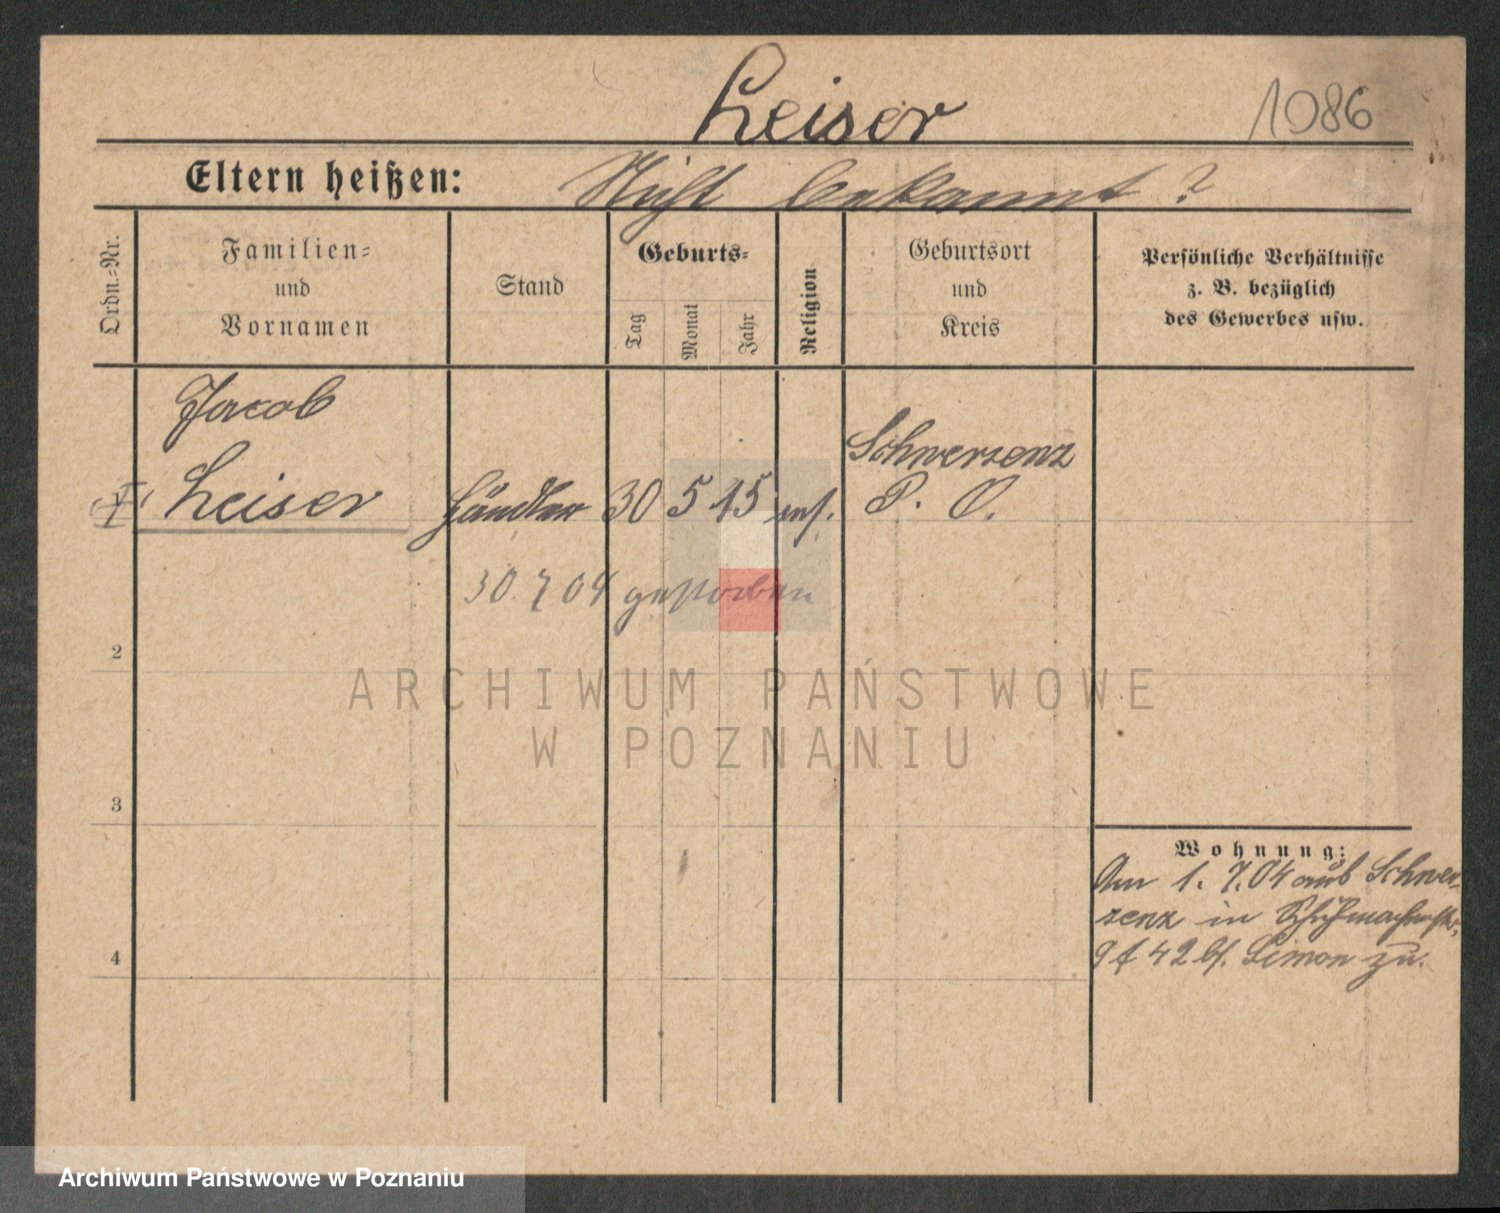 Leiser
1086
Eltern heißen: Nicht bekannt?
Ordn.-Nr.
Familien-
und
Vornamen
Stand
Geburts-
Tag
Monat
Jahr
Religion
Geburtsort
und
Kreis
Persönliche Verhältnisse
z. B. bezüglich
des Gewerbes usw.
Jacob
Leiser
Händler 30 5 45
Schwersenz
P. O.
30 7 04 gestorben
2
3
4
ARCHIWUM PAŃSTWOWE
W POZNANIU
Wohnung:
Am 1. 7. 04 aus Schwer-
senz in Schuhmacherstr.
42 bei Simon zu.
Archiwum Państwowe w Poznaniu